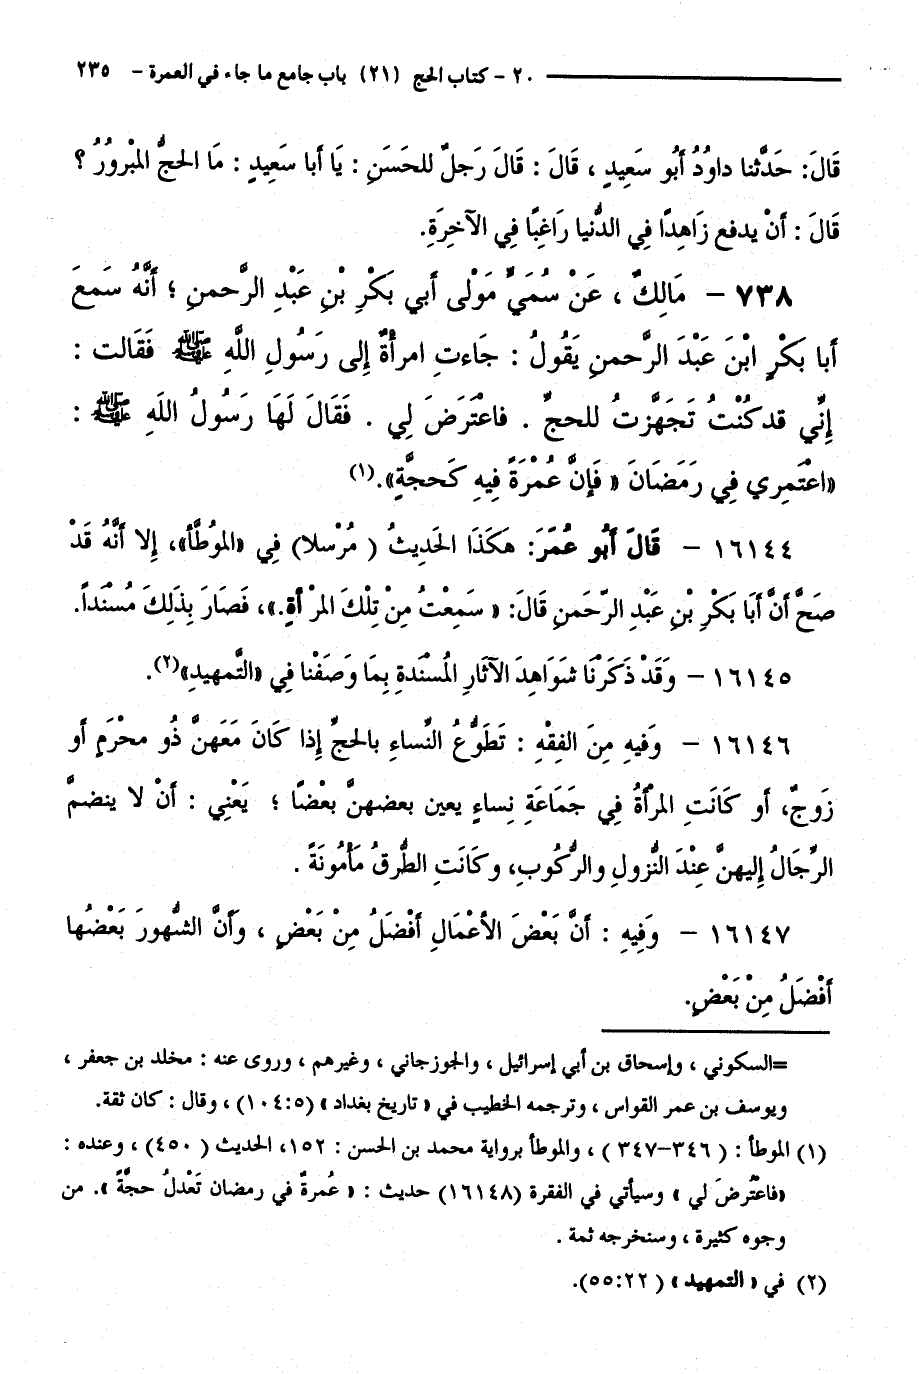 ٢٠ – كتاب الحج (٢١) باب جامع ما جاء في العمرة – ٢٣٥
قَالَ: حَدَّثنا داوُدُ أَبُو سَعِيدٍ ، قَالَ : قَالَ رَجلٌ للحَسَنِ : يَا أبا سَعِيدٍ : مَا الحَجُّ المَبْرورُ ؟
قَالَ : أنْ يدفع زَاهِدًا فِي الدُّنيا رَاغِبًا فِي الآخِرَةِ.
٧٣٨ – مَالِكٌ ، عَنْ سُمَيٍّ مَوْلى أبي بَكْرِ بْنِ عَبْدِ الرَّحمنِ ؛ أنَّهُ سَمعَ
أبا بَكْرٍ ابْنَ عَبْدَ الرَّحمنِ يَقُولُ : جَاءتِ امرأةٌ إلى رَسُولِ اللَّهِ ﷺ فَقَالت :
إنِّي قدكُنْتُ تَجَهَّزتُ للحجِّ . فاعْتَرَضَ لِي . فَقَالَ لَهَا رَسُولُ اللَه ﷺ :
«اعْتَمِري فِي رَمَضَانَ « فَإنَّ عُمْرَةً فِيهِ كَحجَّةٍ».(١)
١٦١٤٤ – قَالَ أَبُو عُمَرَ: هَكَذَا الحَدِيثُ ( مُرْسلا) فِي «المُوطَّأ»، إلا أنَّهُ قَدْ
صَحَّ أنَّ أبَا بَكْرِ بْنِ عَبْدِ الرّحَمنِ قَالَ: « سَمِعْتُ مِنْ تِلْكَ المرْ أةِ.»، فَصَارَ بِذَلِكَ مُسْنَداً.
١٦١٤٥ – وَقَدْ ذَكَرْنَا شَوَاهِدَ الآثَارِ المُسْنَدةِ بِمَا وَصَفْنا فِي «التَّمهيدِ»(٢).
١٦١٤٦ – وَفِيهِ مِنَ الفِقْهِ : تَطَوُّعُ النِّساءِ بالحجِّ إذا كَانَ مَعَهنَّ ذُو محْرَمٍ أو
زَوجٌ، أو كَانَتِ المرْأةُ فِي جَمَاعَةِ نِساءٍ يعين بعضهنَّ بعْضًا ؛ يَعْنِي : أنْ لا ينضمَّ
الرِّجَالُ إليهنَّ عِنْدَ النُّزولِ والرُّكُوبِ، وكَانَتِ الطُّرقُ مَأْمُونَةً .
١٦١٤٧ – وَفِيهِ : أنَّ بَعْضَ الأعْمَالِ أفْضَلُ مِنْ بَعْضٍ ، وَأنَّ الشُّهورَ بَعْضُها
أفْضَلُ مِنْ بَعْضٍ.
=السكوني ، وإسحاق بن أبي إسرائيل ، والجوزجاني ، وغيرهم ، وروى عنه : مخلد بن جعفر ،
ويوسف بن عمر القواس ، وترجمه الخطيب في « تاريخ بغداد » (١٠٤:٥) ، وقال : كان ثقة.
(١) الموطأ : ( ٣٤٦–٣٤٧ ) ، والموطأ برواية محمد بن الحسن : ١٥٢، الحديث ( ٤٥٠) ، وعنده :
«فاعتُرضَ لي » وسيأتي في الفقرة (١٦١٤٨) حديث : « عُمرةٌ في رمضان تَعْدلُ حجَّةً ». من
وجوه كثيرة ، وسنخرجه ثمة .
(٢) في « التمهيد » ( ٥٥:٢٢).